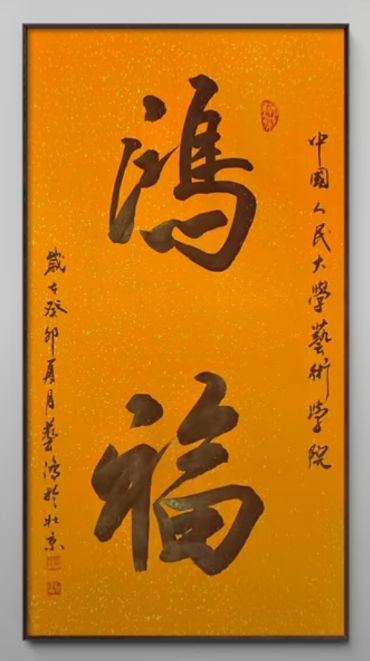 中國人民大學藝術学院
鴻福
歲在癸卯夏月藝鴻於北京